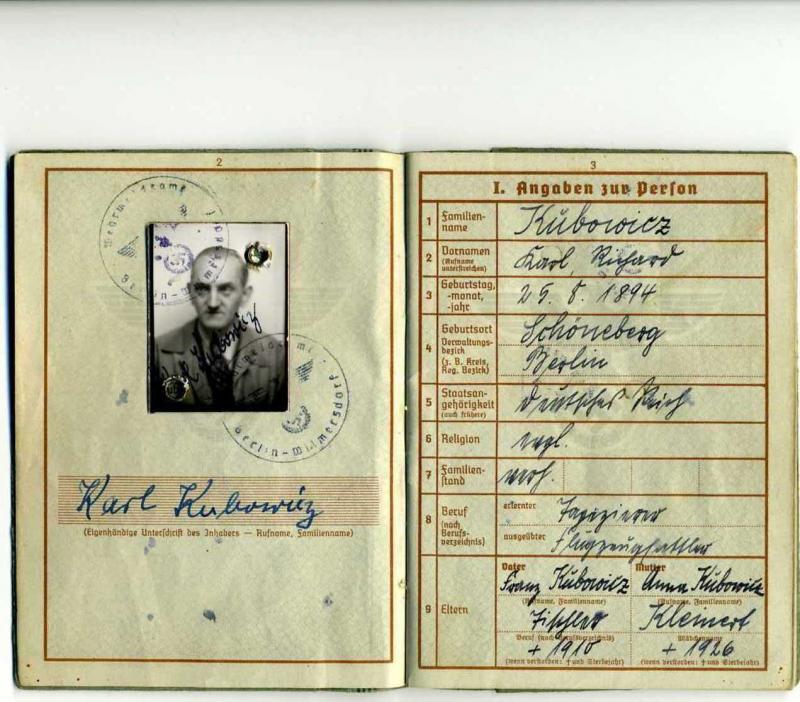 2
Wehrmeldeamt
Berlin-Wilmersdorf
Wehrmeldeamt
Berlin-Wilmersdorf
Kubowicz
Karl Kubowicz
(Eigenhändige Unterschrift des Inhabers — Rufname, Familienname)
3
I. Angaben zur Person
1 Familien-
name
Kubowicz
2 Vornamen
(Rufname
unterstreichen)
Karl, Richard
3 Geburtstag,
-monat,
-jahr
25. 8. 1894
4 Geburtsort
Verwaltungs-
bezirk
(z. B. Kreis,
Reg. Bezirk)
Schöneberg
Berlin
5 Staatsan-
gehörigkeit
(auch frühere)
Deutsches Reich
6 Religion
evgl.
7 Familien-
stand
verh.
8 Beruf
(nach
Berufs-
verzeichnis)
erlernter Tapezierer
ausgeübter Flugzeugsattler
9 Eltern
Vater Mutter
Franz Kubowicz Anna Kubowicz
(Rufname, Familienname) (Rufname, Familienname)
Tischler Kleinert
Beruf (nach Berufsverzeichnis) Mädchenname
+ 1910 + 1926
(wenn verstorben: † und Sterbejahr) (wenn verstorben: † und Sterbejahr)